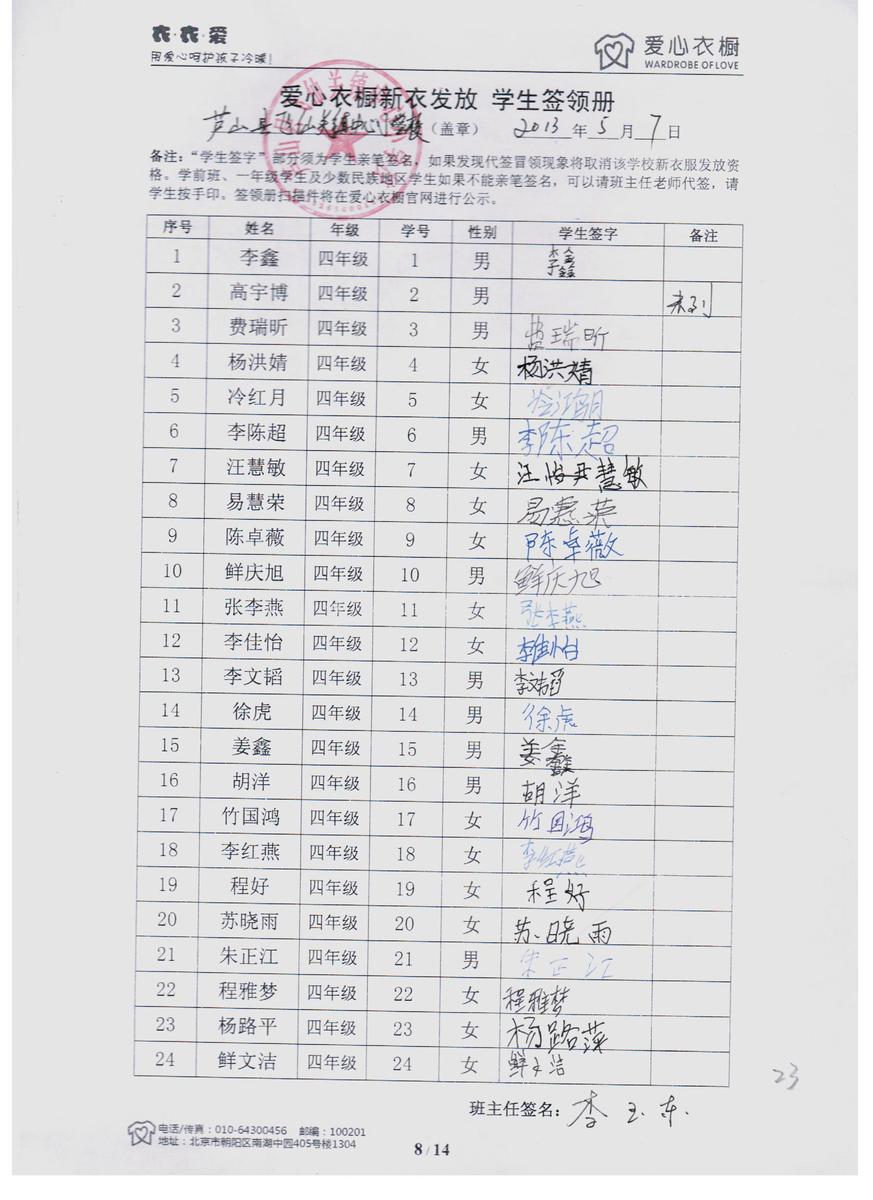 衣·衣·爱
用爱心呵护孩子冷暖!
爱心衣橱
WARDROBE OF LOVE
爱心衣橱新衣发放 学生签领册
芦山县飞仙关镇中心小学校(盖章) 2013年5月7日
备注:“学生签字”部分须为学生亲笔签名,如果发现代签冒领现象将取消该学校新衣服发放资
格。学前班、一年级学生及少数民族地区学生如果不能亲笔签名,可以请班主任老师代签,请
学生按手印。签领册扫描件将在爱心衣橱官网进行公示。
序号 姓名 年级 学号 性别 学生签字 备注
1 李鑫 四年级 1 男 李鑫
2 高宇博 四年级 2 男 未到
3 费瑞昕 四年级 3 男 费瑞昕
4 杨洪婧 四年级 4 女 杨洪婧
5 冷红月 四年级 5 女 冷鸿月
6 李陈超 四年级 6 男 李陈超
7 汪慧敏 四年级 7 女 汪 慧敏
8 易慧荣 四年级 8 女 易慧荣
9 陈卓薇 四年级 9 女 陈卓薇
10 鲜庆旭 四年级 10 男 鲜庆旭
11 张李燕 四年级 11 女 张李燕
12 李佳怡 四年级 12 女 李佳怡
13 李文韬 四年级 13 男 李文韬
14 徐虎 四年级 14 男 徐虎
15 姜鑫 四年级 15 男 姜鑫
16 胡洋 四年级 16 男 胡洋
17 竹国鸿 四年级 17 女 竹国鸿
18 李红燕 四年级 18 女 李红燕
19 程好 四年级 19 女 程好
20 苏晓雨 四年级 20 女 苏晓雨
21 朱正江 四年级 21 男 朱正江
22 程雅梦 四年级 22 女 程雅梦
23 杨路平 四年级 23 女 杨路萍
24 鲜文洁 四年级 24 女 鲜文洁
23
班主任签名:李玉东.
电话/传真:010-64300456 邮编:100201
地址:北京市朝阳区南湖中园405号楼1304
8 / 14